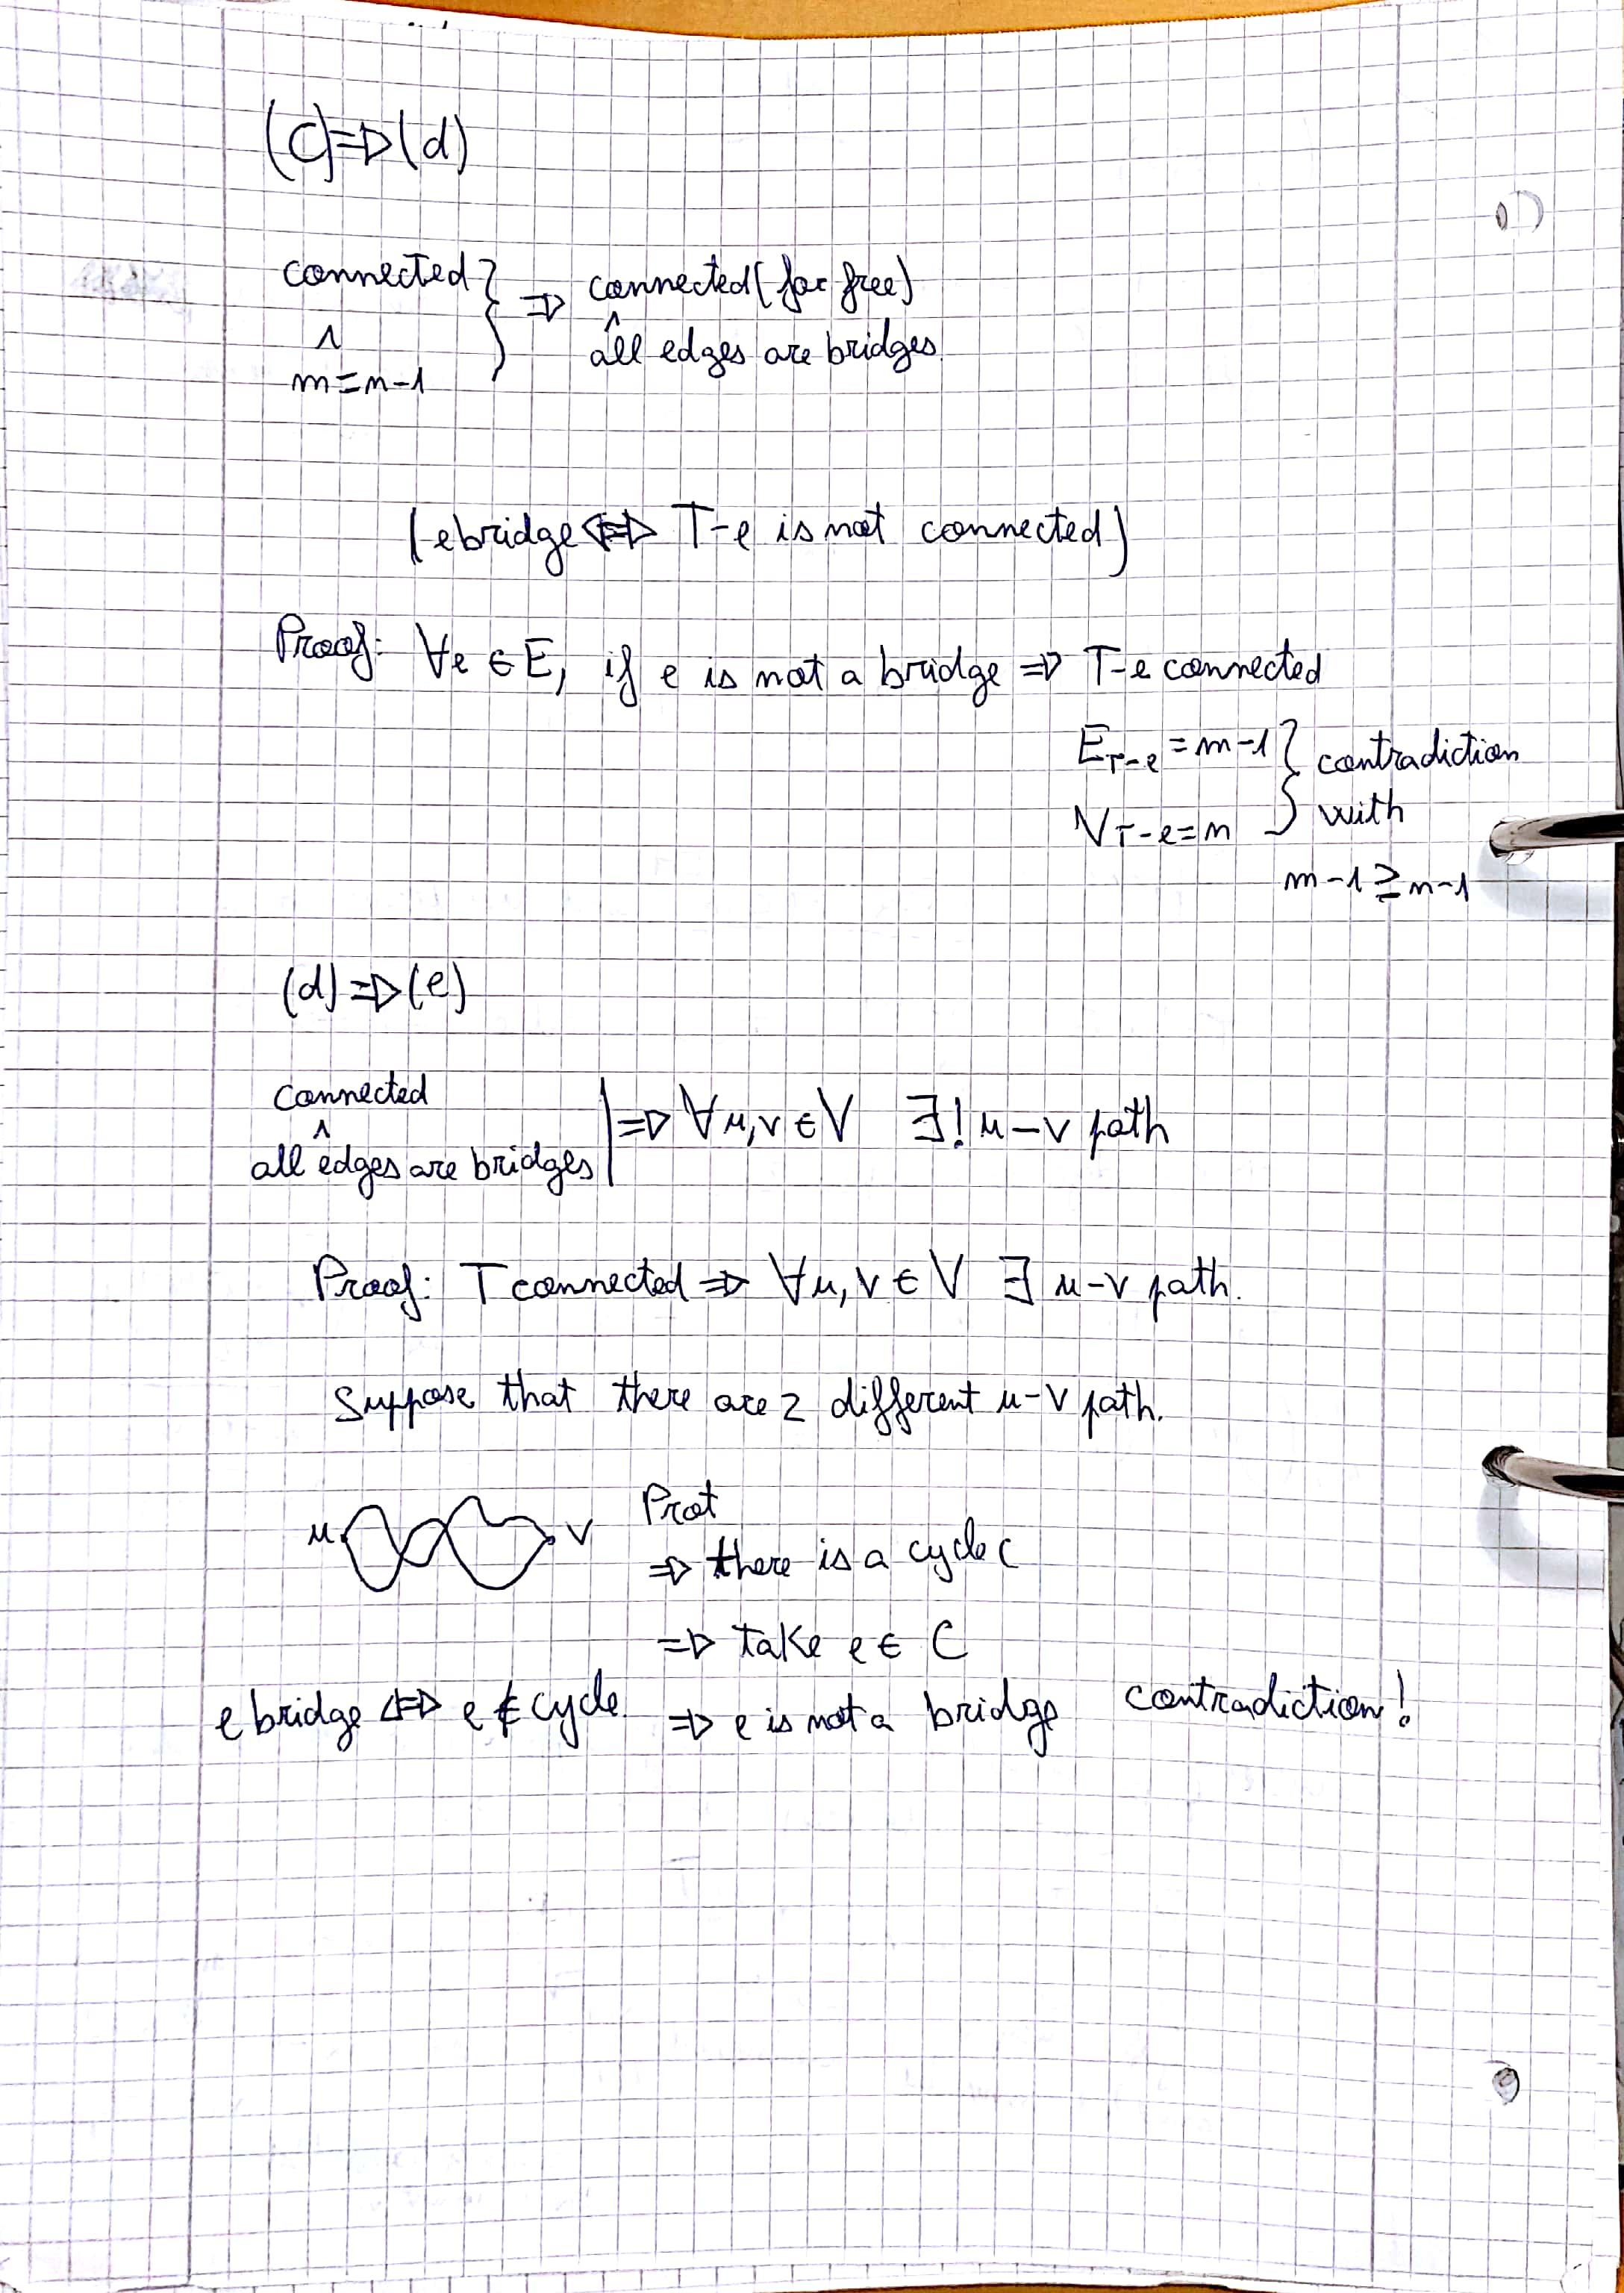 (c) ⇒ (d)
connected } ⇒ connected (for free)
∧ ∧
m = n-1 all edges are bridges
(e bridge ⇔ T-e is not connected)
Proof: ∀e ∈ E, if e is not a bridge ⇒ T-e connected
E_{T-e} = m-1 } contradiction
V_{T-e} = n with
m-1 ≥ n-1
(d) ⇒ (e)
connected
∧ | ⇒ ∀u,v ∈ V ∃! u-v path
all edges are bridges
Proof: T connected ⇒ ∀u,v ∈ V ∃ u-v path.
Suppose that there are 2 different u-v path.
u v Prot
⇒ there is a cycle C
⇒ take e ∈ C
e bridge ⇔ e ∉ cycle ⇒ e is not a bridge contradiction!